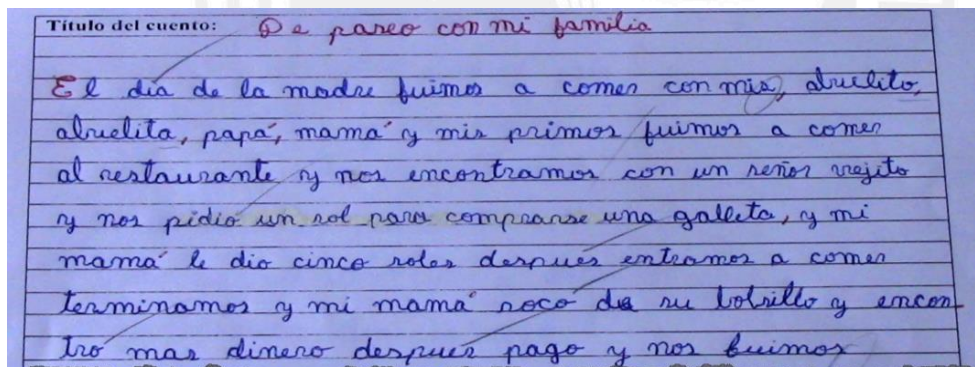 Título del cuento: De paseo con mi familia
El día de la madre fuimos a comer con mis, abuelito,
abuelita, papá, mamá y mis primos fuimos a comer
al restaurante y nos encontramos con un señor vejito
y nos pidio un sol para comprarse una galleta, y mi
mamá le dio cinco soles despues entramos a comer
terminamos y mi mamá soco de su bolsillo y encon
tro mas dinero despues pago y nos fuimos